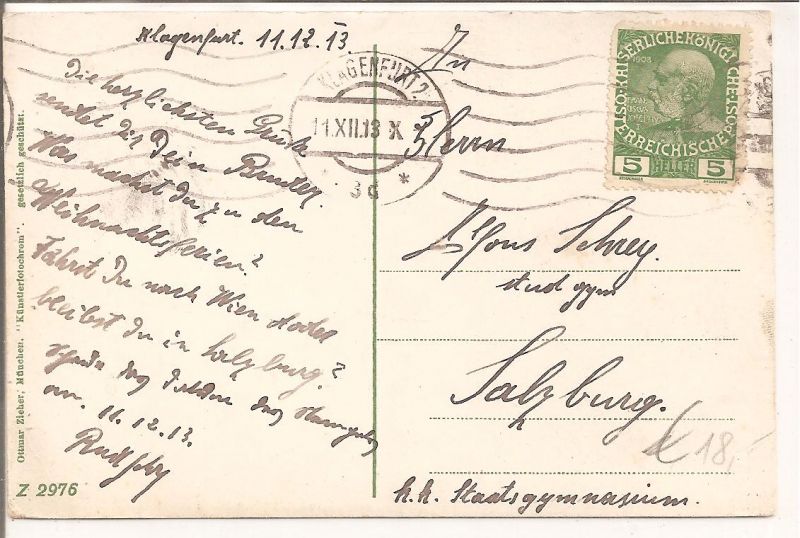 Klagenfurt. 11.12.13.
Die herzlichsten Grüße
sendet Dir Dein Bruder.
Was machst Du in den
Weihnachtsferien?
Fährst Du nach Wien oder
bleibst Du in Salzburg?
am. 11.12.13.
An
Herrn
Alfons Schrey.
stud gym
Salzburg.
k.k. Staatsgymnasium.
18,-
KLAGENFURT 2
11.XII.13 X
3d *
KAISERLICHE KÖNIGLICHE ÖSTERREICHISCHE POST
1908
5 HELLER 5
Ottmar Zieher, München. "Künstlerfotochrom". gesetzlich geschützt.
Z 2976